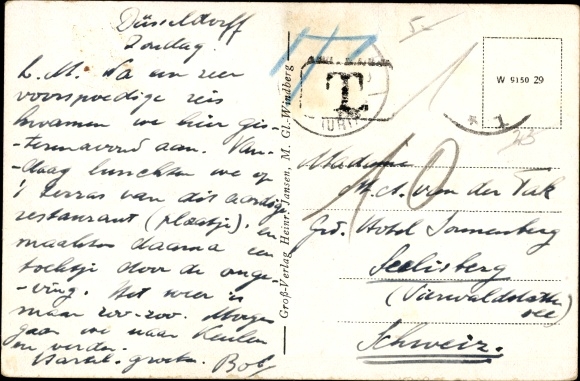 Düsseldorff
Zondag.
L. M. Na een zeer
voorspoedige reis
kwamen we hier gis-
terenavond aan. Van-
daag lunchten we op
't terras van dit aardige
restaurant (plaatje), en
maakten daarna een
tochtje door de omge-
ving. Het weer is
maar zoo-zoo. Morgen
gaan we naar Keulen
en verder.
Hartel. groeten. Bob
Groß-Verlag Heinr. Jansen, M. Gl.-Windberg
T
W 9150 29
Madame
v.d. van der Tak
Grd. Hotel Sonnenberg
Seelisberg
(Vierwaldstätter
see)
Schweiz.